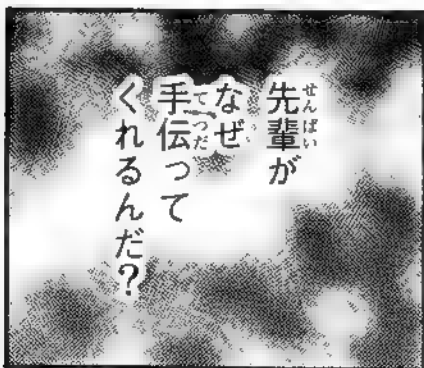 先輩が
なぜ
手伝って
くれるんだ？